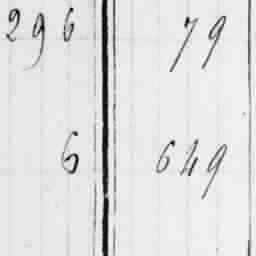 296 79
6 649